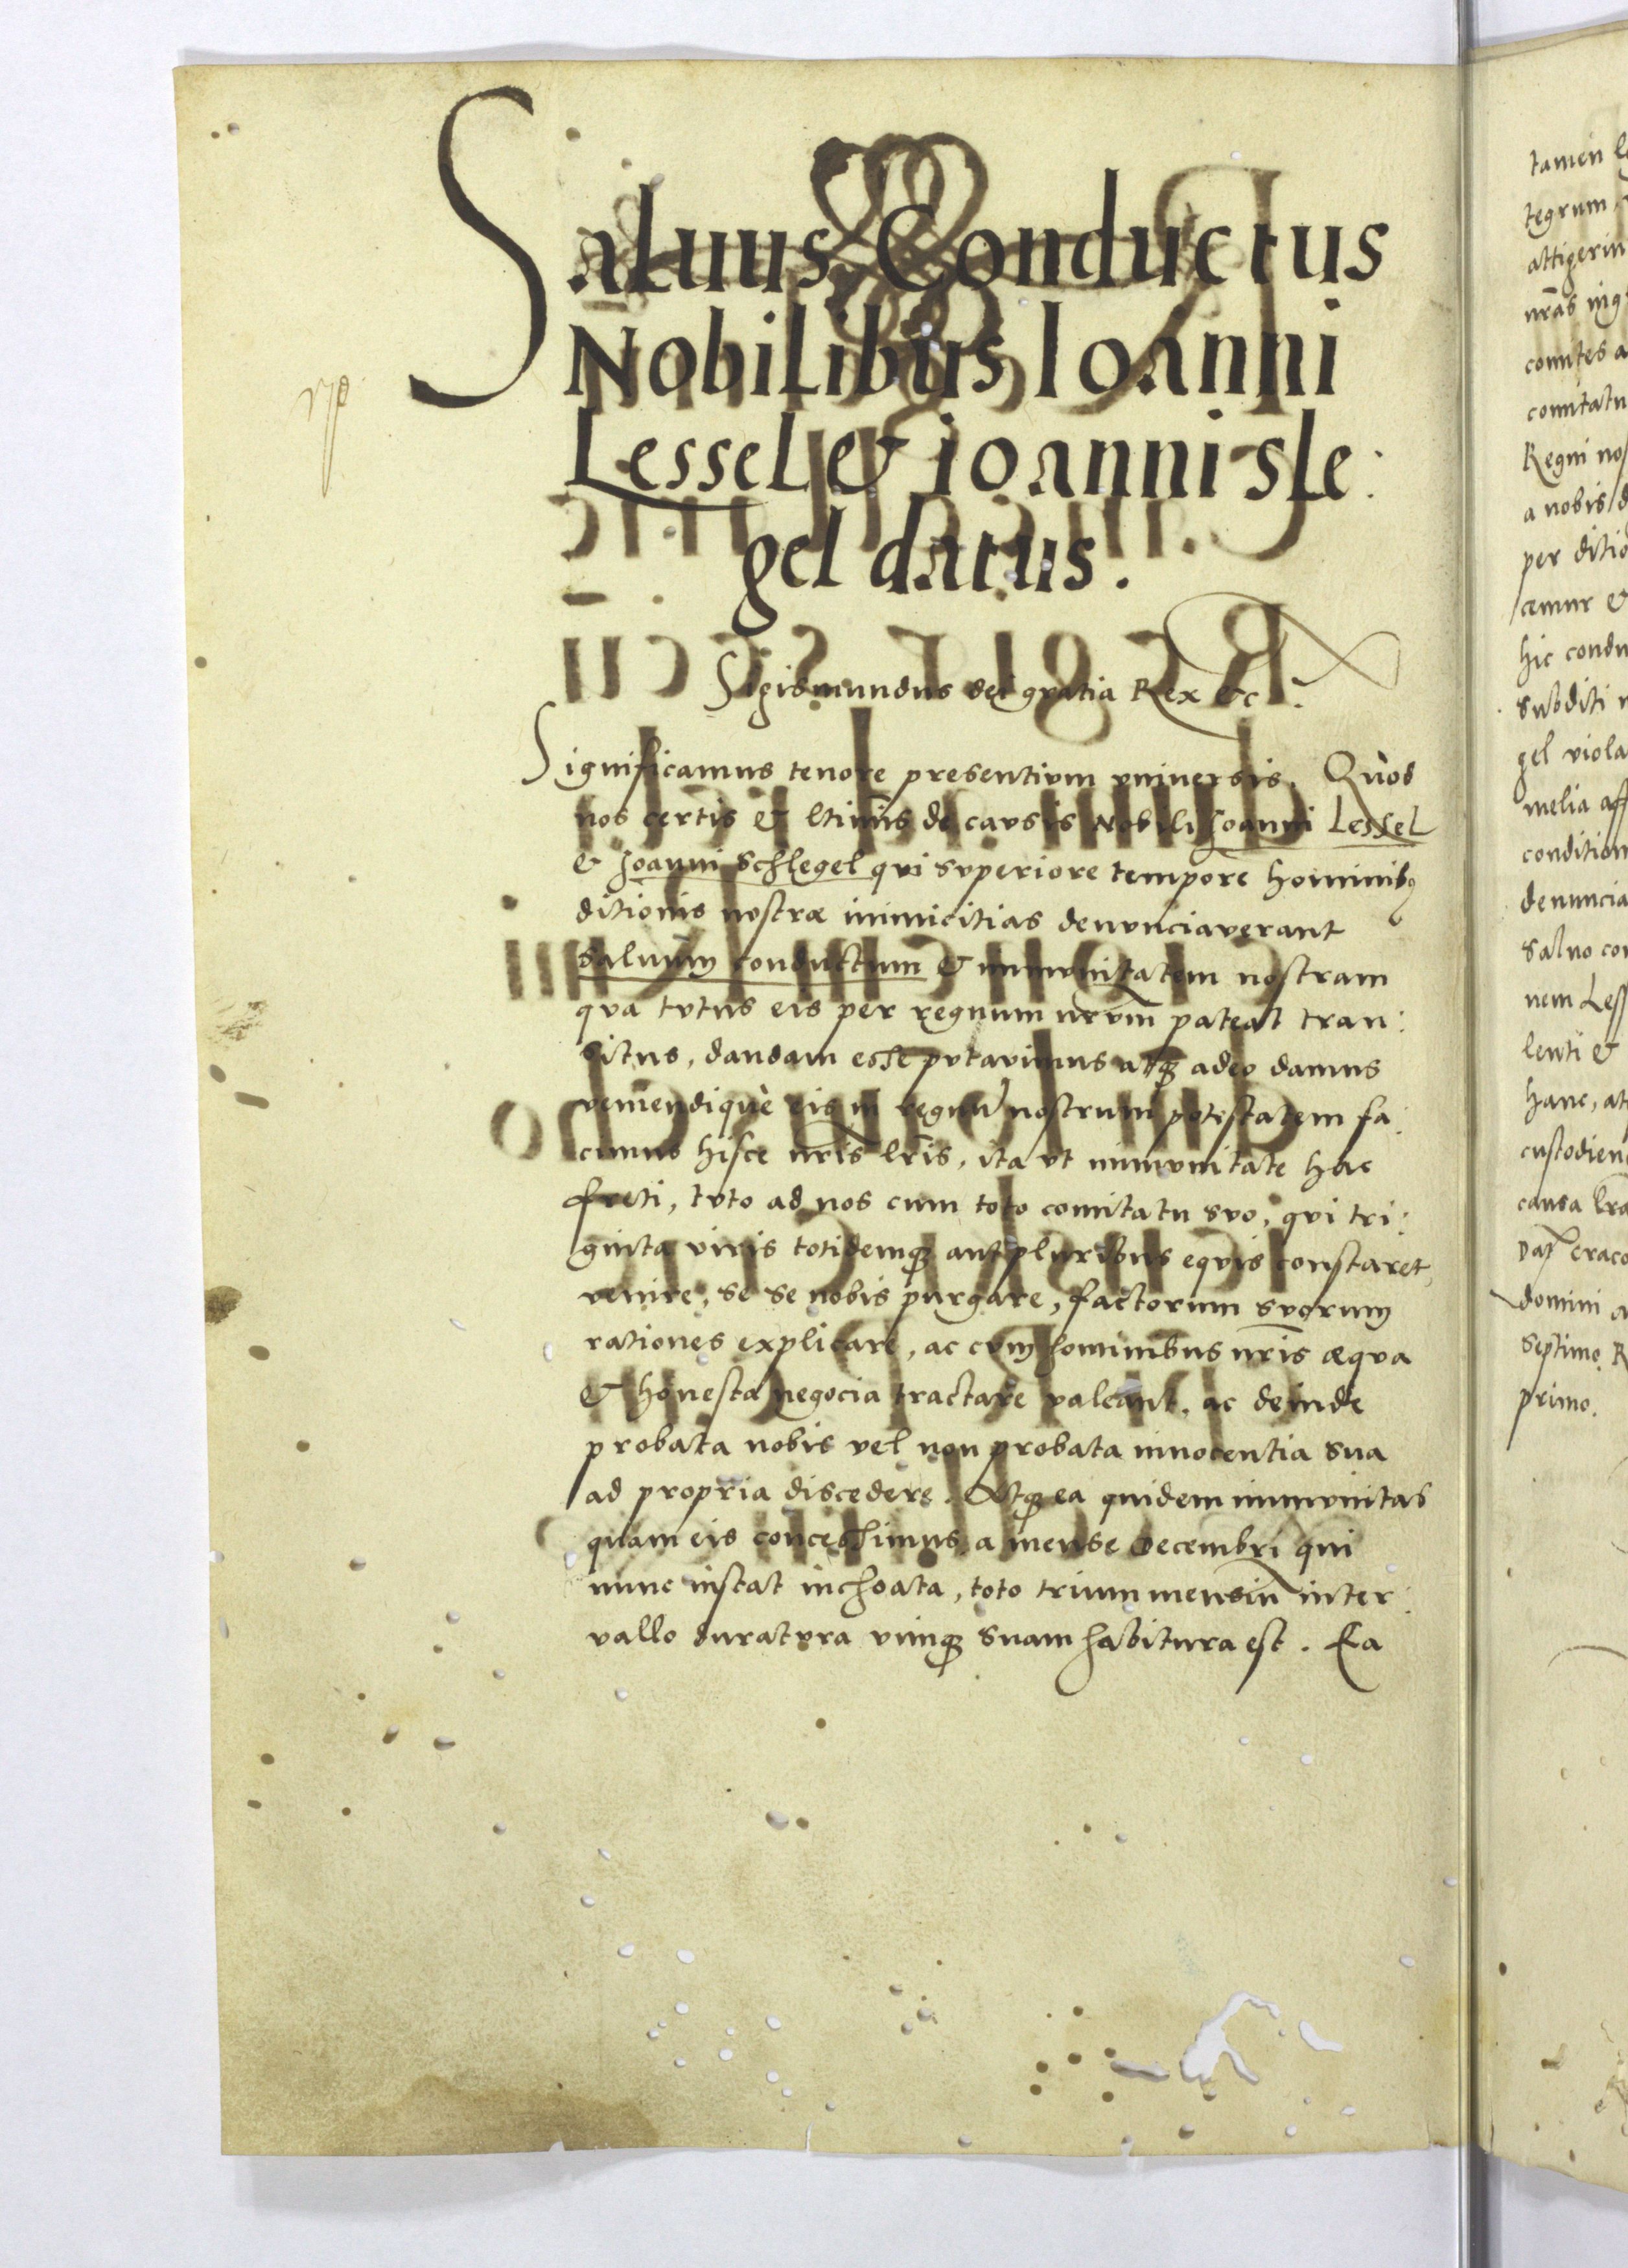 Saluus Conductus
Nobilibus Ioanni
Lessel & ioanni sle:
gel datus.
Sigismundus dei gratia Rex &c:
Significamus tenore presentivm vniuersis. Quòd
nos certis & ltimis de cavsis Nobili Joanni Lessel
& Joanni Schlegel qvi svperiore tempore hominibꝫ
ditionis nostræ inimicitias denvnciaverant
salvum conductum & immvnitatem nostram
qva tvtus eis per regnum nrvm pateat tran:
situs, dandam esse pvtavimus atqꝫ adeo damus
veniendiquè eis in regnu nostrum potestatem fa:
cimus hisce nris lris, ita vt immvnitate hac
freti, tvto ad nos cum toto comitatu svo, qvi tri:
ginta viris totidemqꝫ aut pluribus eqvis constaret,
venire, se se nobis pvrgare, factorum svorum
rationes explicare, ac cvm hominibus nris æqva
& honesta negocia tractare valeant. ac deinde
probata nobis vel non probata innocentia sua
ad propria discedere. Atqꝫ ea quidem immvnitas
quam eis concessimus a mense Decembri qui
nunc instat inchoata, toto trium mensiu inter:
vallo duratvra vimqꝫ suam habitura est. Ea
tamen
tegrum
attigerin
nras ing
comites a
comitatu
Regni nos
a nobis d
per ditio
cemur &
hic condu
subditi
gel viola
melia aff
condition
denuncia
salvo con
nem Less
lenti &
hanc, at
custodien
causa lra
Dat craco
domini a
septimo. R
primo.